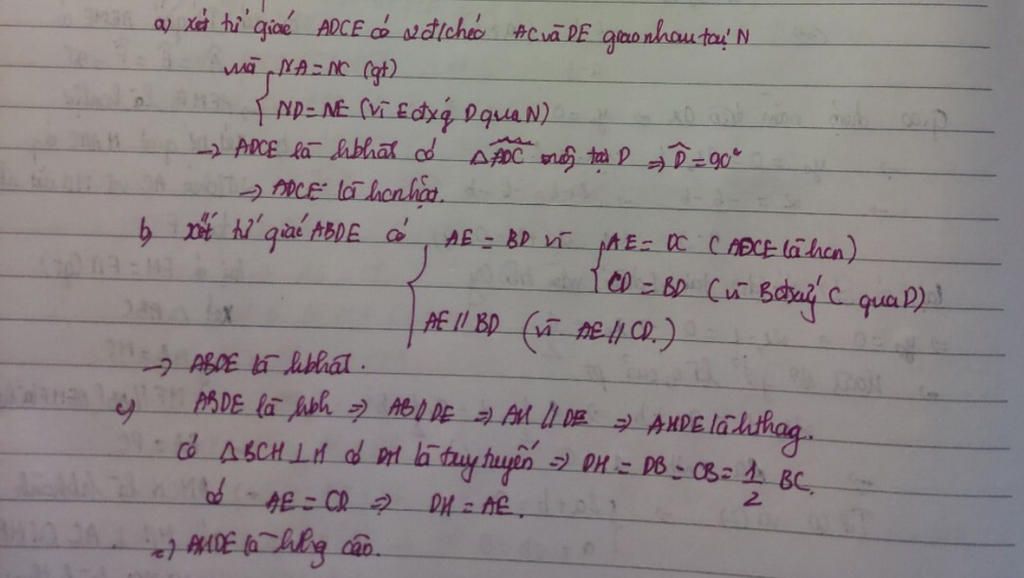 a) xét tứ giác ADCE có 2 đ/chéo AC và DE giao nhau tại N
mà { NA = NC (gt)
ND = NE (vì E đxứg D qua N)
→ ADCE là hbhàh có △ADC vuông tại D ⇒ D̂ = 90°
→ ADCE là hcnhật.
b) xét tứ giác ABDE có { AE = BD vì { AE = DC (ADCE là hcn)
CD = BD (vì B đxứg C qua D)
AE // BD (vì AE // CD.)
→ ABDE là hbhàh.
c) ABDE là hbh ⇒ AB // DE ⇒ AH // DE ⇒ AHDE là hthag.
có △BCH ⊥ H có DH là tuy tuyến ⇒ DH = DB = CB = 1/2 BC.
có AE = CD ⇒ DH = AE.
⇒ AHDE là cân.